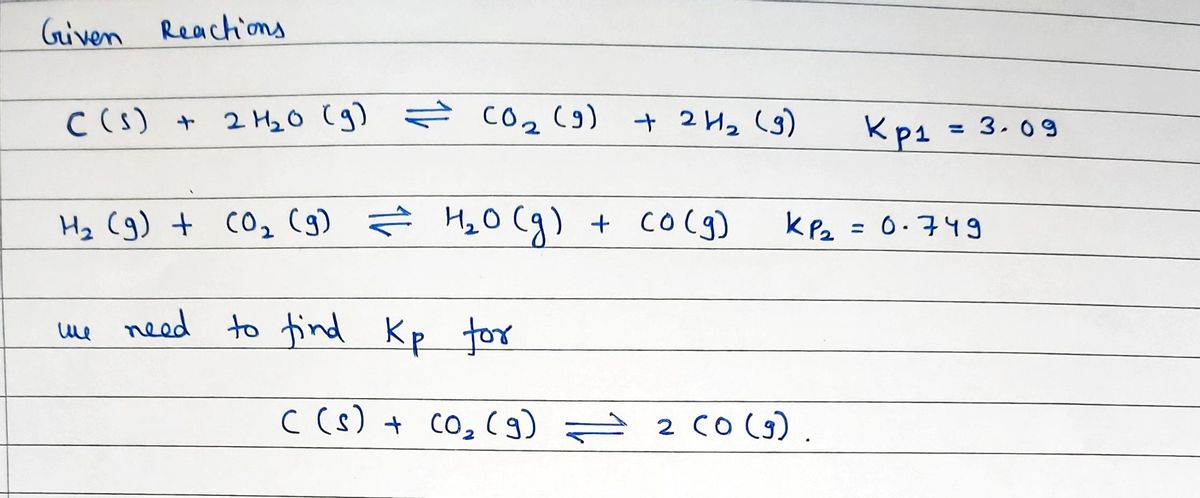 Given Reactions
C (s) + 2 H₂O (g) ⇌ CO₂ (g) + 2 H₂ (g) Kp1 = 3.09
H₂ (g) + CO₂ (g) ⇌ H₂O (g) + CO (g) KP₂ = 0.749
we need to find Kp for
C (s) + CO₂ (g) ⇌ 2 CO (g).